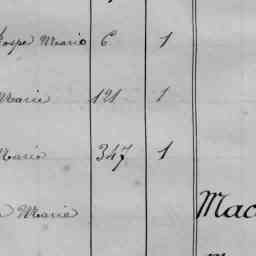 Marie 6 1
Marie 121 1
Marie 347 1
Marie
Mac